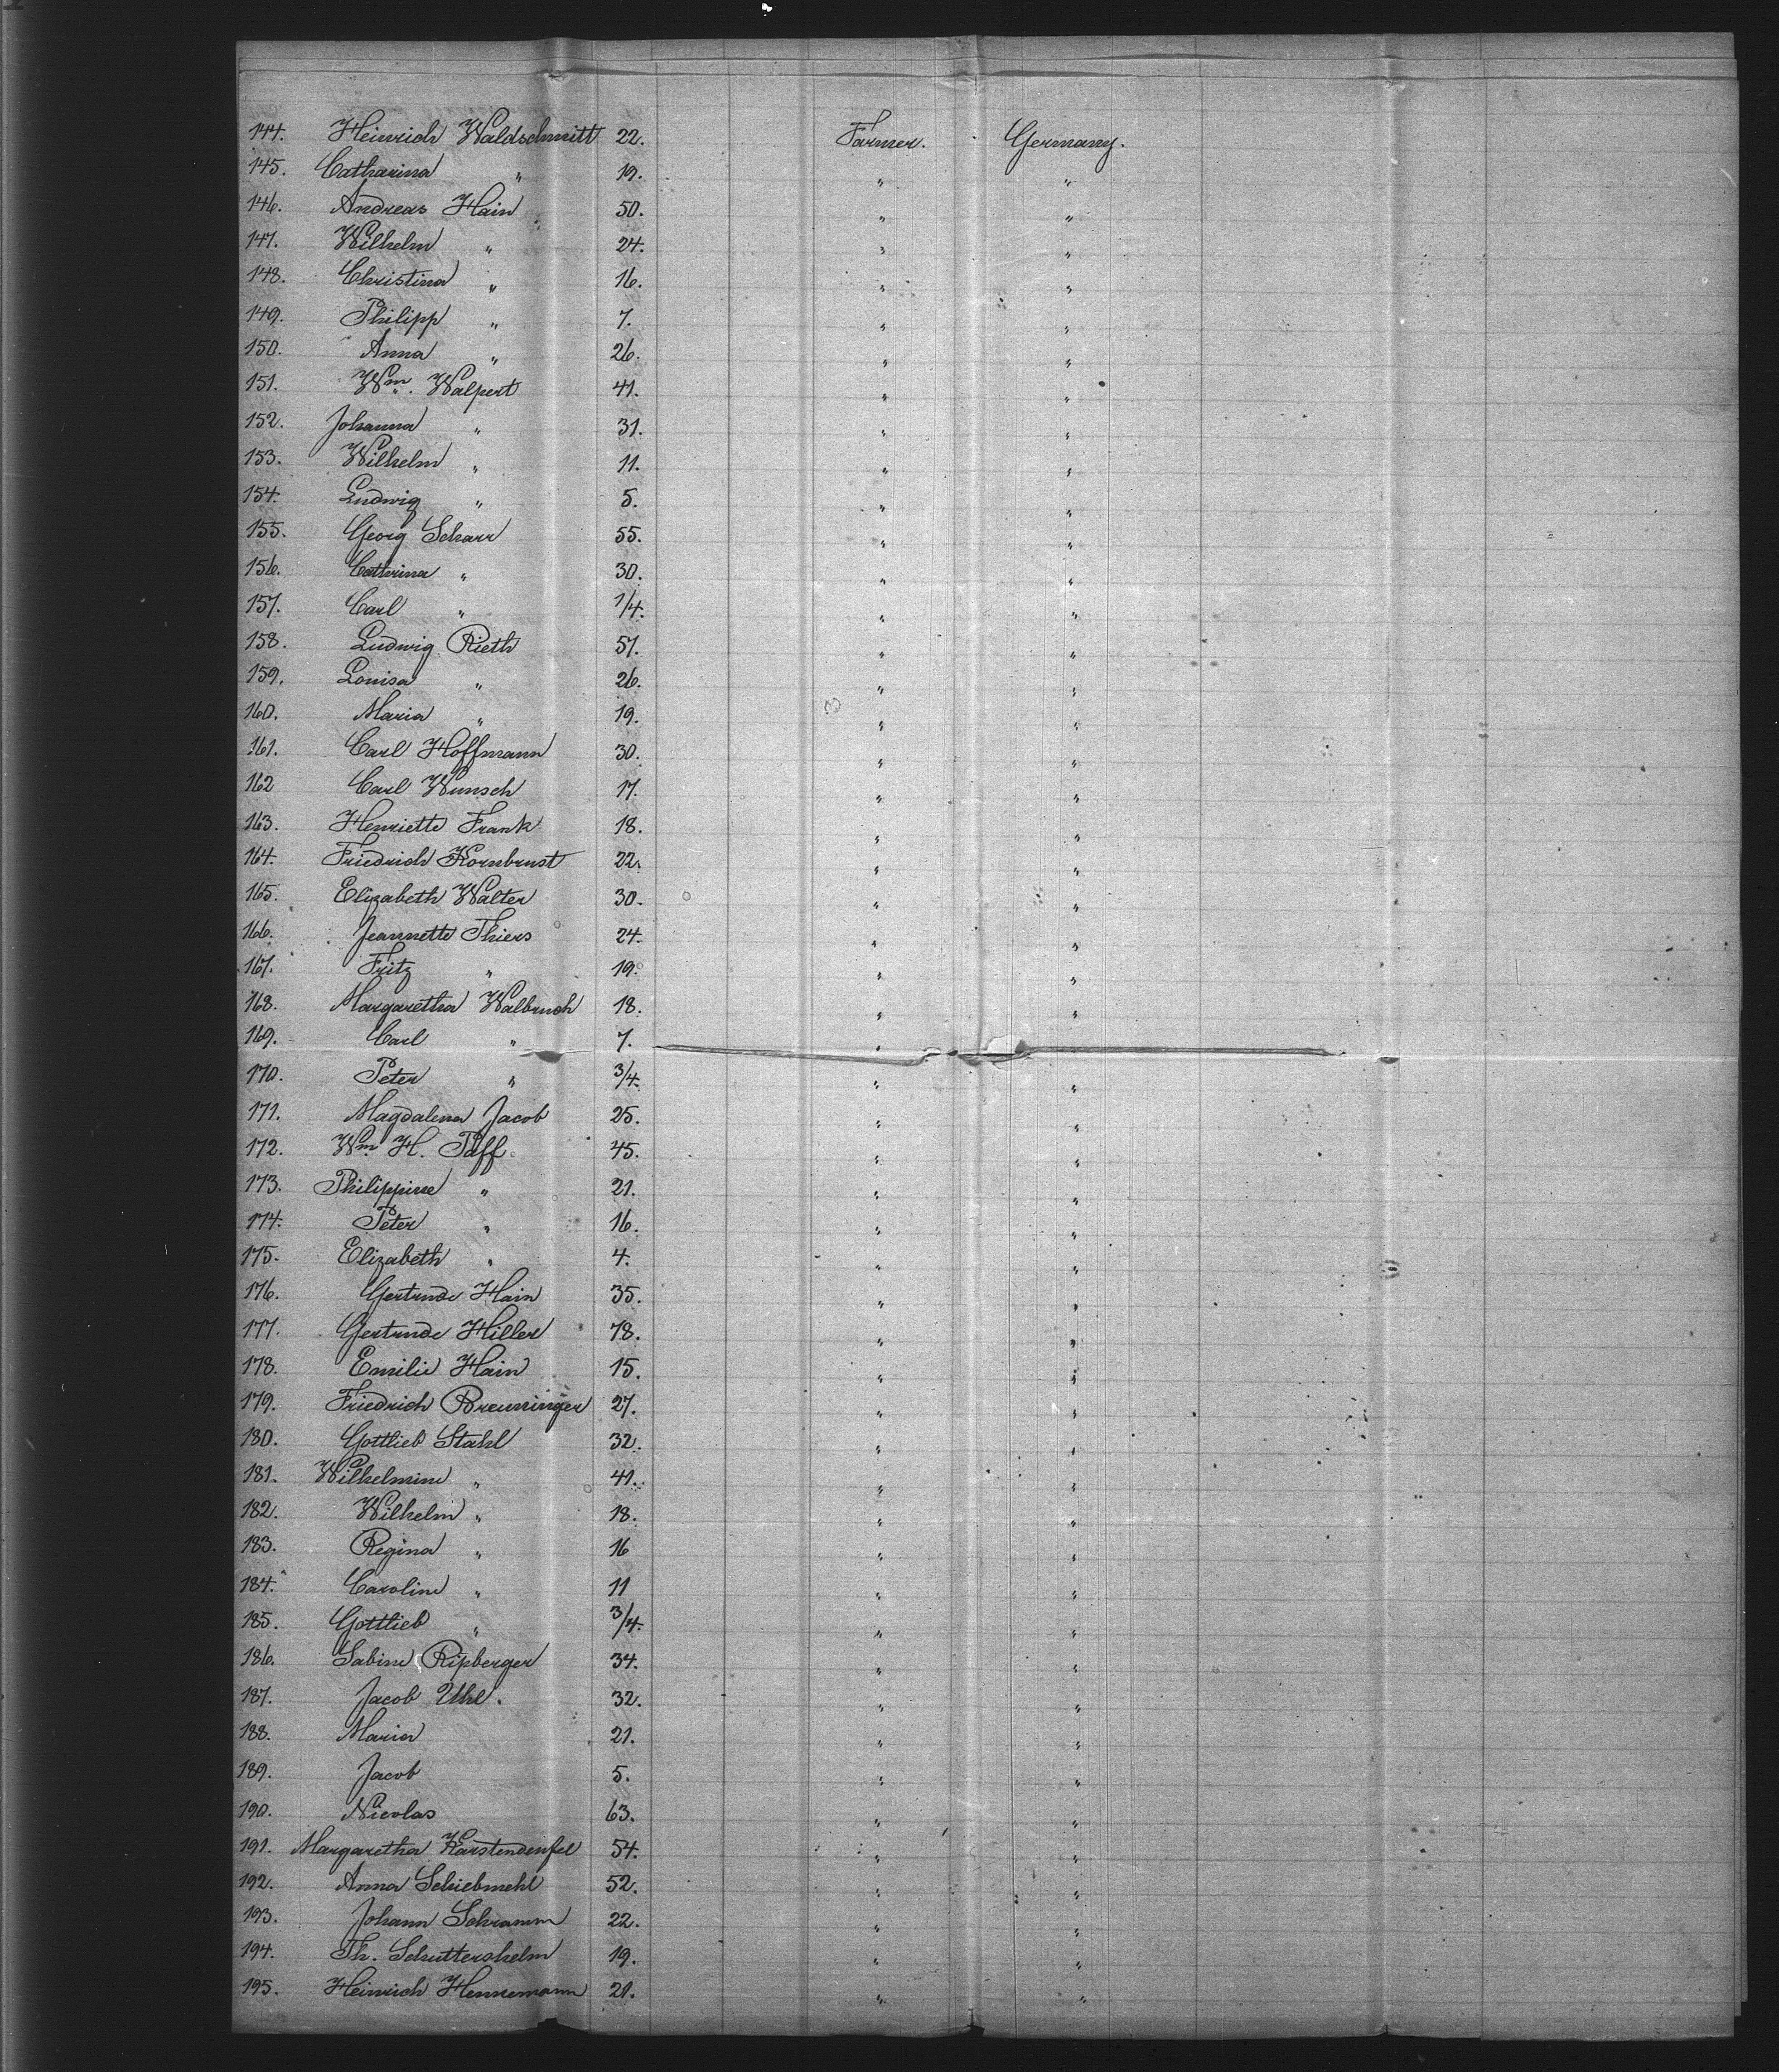 144. Heinrich Waldschmitt 22. Farmer. Germany.
145. Catharina " 19. " "
146. Andreas Hain 50. " "
147. Wilhelm " 24. " "
148. Christina " 16. " "
149. Philipp " 7. " "
150. Anna " 26. " "
151. Wm. Walpert 41. " "
152. Johanna " 31. " "
153. Wilhelm " 11. " "
154. Ludwig " 5. " "
155. Georg Scharr 55. " "
156. Cathrina " 30. " "
157. Carl " 1/4. " "
158. Ludwig Rieth 57. " "
159. Louisa " 26. " "
160. Maria " 19. " "
161. Carl Hoffmann 30. " "
162 Carl Wunsch 17. " "
163. Henriette Frank 18. " "
164. Friedrich Kornbrust 22. " "
165. Elizabeth Walter 30. " "
166. Jeannette Thiers 24. " "
167. Fritz " 19. " "
168. Margaretha Walbruch 18. " "
169. Carl " 7. " "
170. Peter " 3/4. " "
171. Magdalena Jacob 25. " "
172. Wm H. Paff. 45. " "
173. Philippine " 21. " "
174. Peter " 16. " "
175. Elizabeth " 4. " "
176. Gertrude Hain 35. " "
177. Gertrude Hiller 78. " "
178. Emilie Hain 15. " "
179. Friedrich Breuninger 27. " "
180. Gottlieb Stahl 32. " "
181. Wilhelmine " 41. " "
182. Wilhelm " 18. " "
183. Regina " 16 " "
184. Caroline " 11 " "
185. Gottlieb " 3/4. " "
186. Sabine Ripberger 34. " "
187. Jacob Uhl. 32. " "
188. Maria 21. " "
189. Jacob 5. " "
190. Nicolas 63. " "
191. Margaretha 54. " "
192. Anna Schiebmehl 52. " "
193. Johann Schramm 22. " "
194. Th. Schuttershelm 19. " "
195. Heinrich Hennemann 21. " "